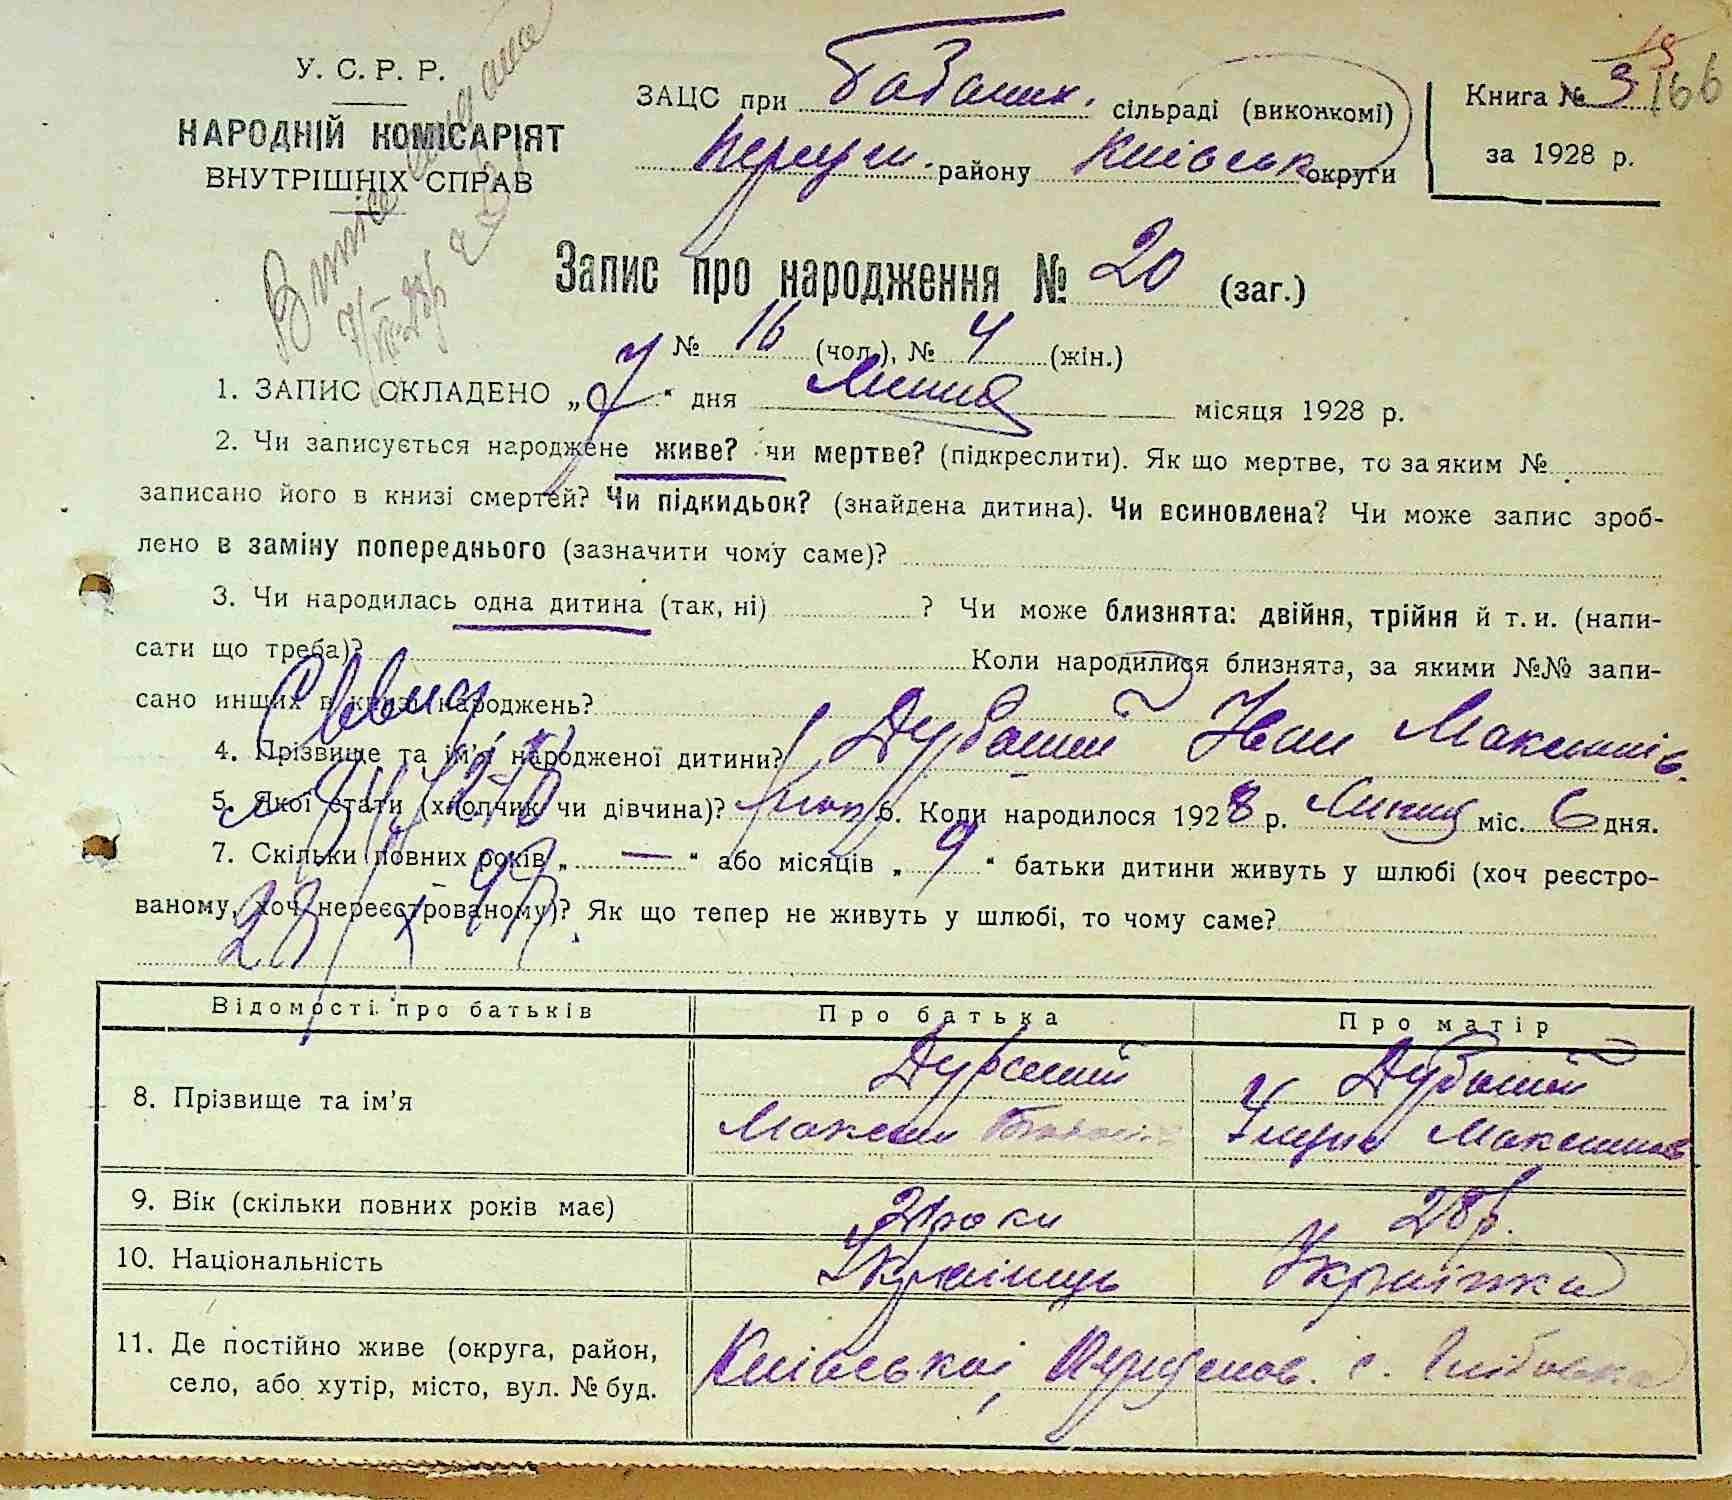 У. С. Р. Р.
НАРОДНІЙ КОМІСАРІЯТ
ВНУТРІШНІХ СПРАВ
ЗАЦС при сільраді (виконкомі)
району Київськ округи
Книга №
за 1928 р.
Запис про народження № 20 (заг.)
№ 16 (чол.), № 4 (жін.)
1. ЗАПИС СКЛАДЕНО „7“ дня Липня місяця 1928 р.
2. Чи записується народжене живе? чи мертве? (підкреслити). Як що мертве, то за яким №
записано його в книзі смертей? Чи підкидьок? (знайдена дитина). Чи всиновлена? Чи може запис зроб-
лено в заміну попереднього (зазначити чому саме)?
3. Чи народилась одна дитина (так, ні) ? Чи може близнята: двійня, трійня й т. и. (напи-
сати що треба)? Коли народилися близнята, за якими №№ запи-
сано инших в книзі народжень?
4. Прізвище та ім'я народженої дитини? Іван Максимів.
5. Якої стати (хлопчик чи дівчина)? 6. Коли народилося 1928 р. Липня міс. 6 дня.
7. Скільки повних років „ — “ або місяців „ 9 “ батьки дитини живуть у шлюбі (хоч реєстро-
ваному, хоч нереєстрованому)? Як що тепер не живуть у шлюбі, то чому саме?
Відомості про батьків Про батька Про матір
8. Прізвище та ім'я
Максим
9. Вік (скільки повних років має) роки 28 р.
10. Національність Українець Українка
11. Де постійно живе (округа, район,
село, або хутір, місто, вул. № буд.
Київської, с.